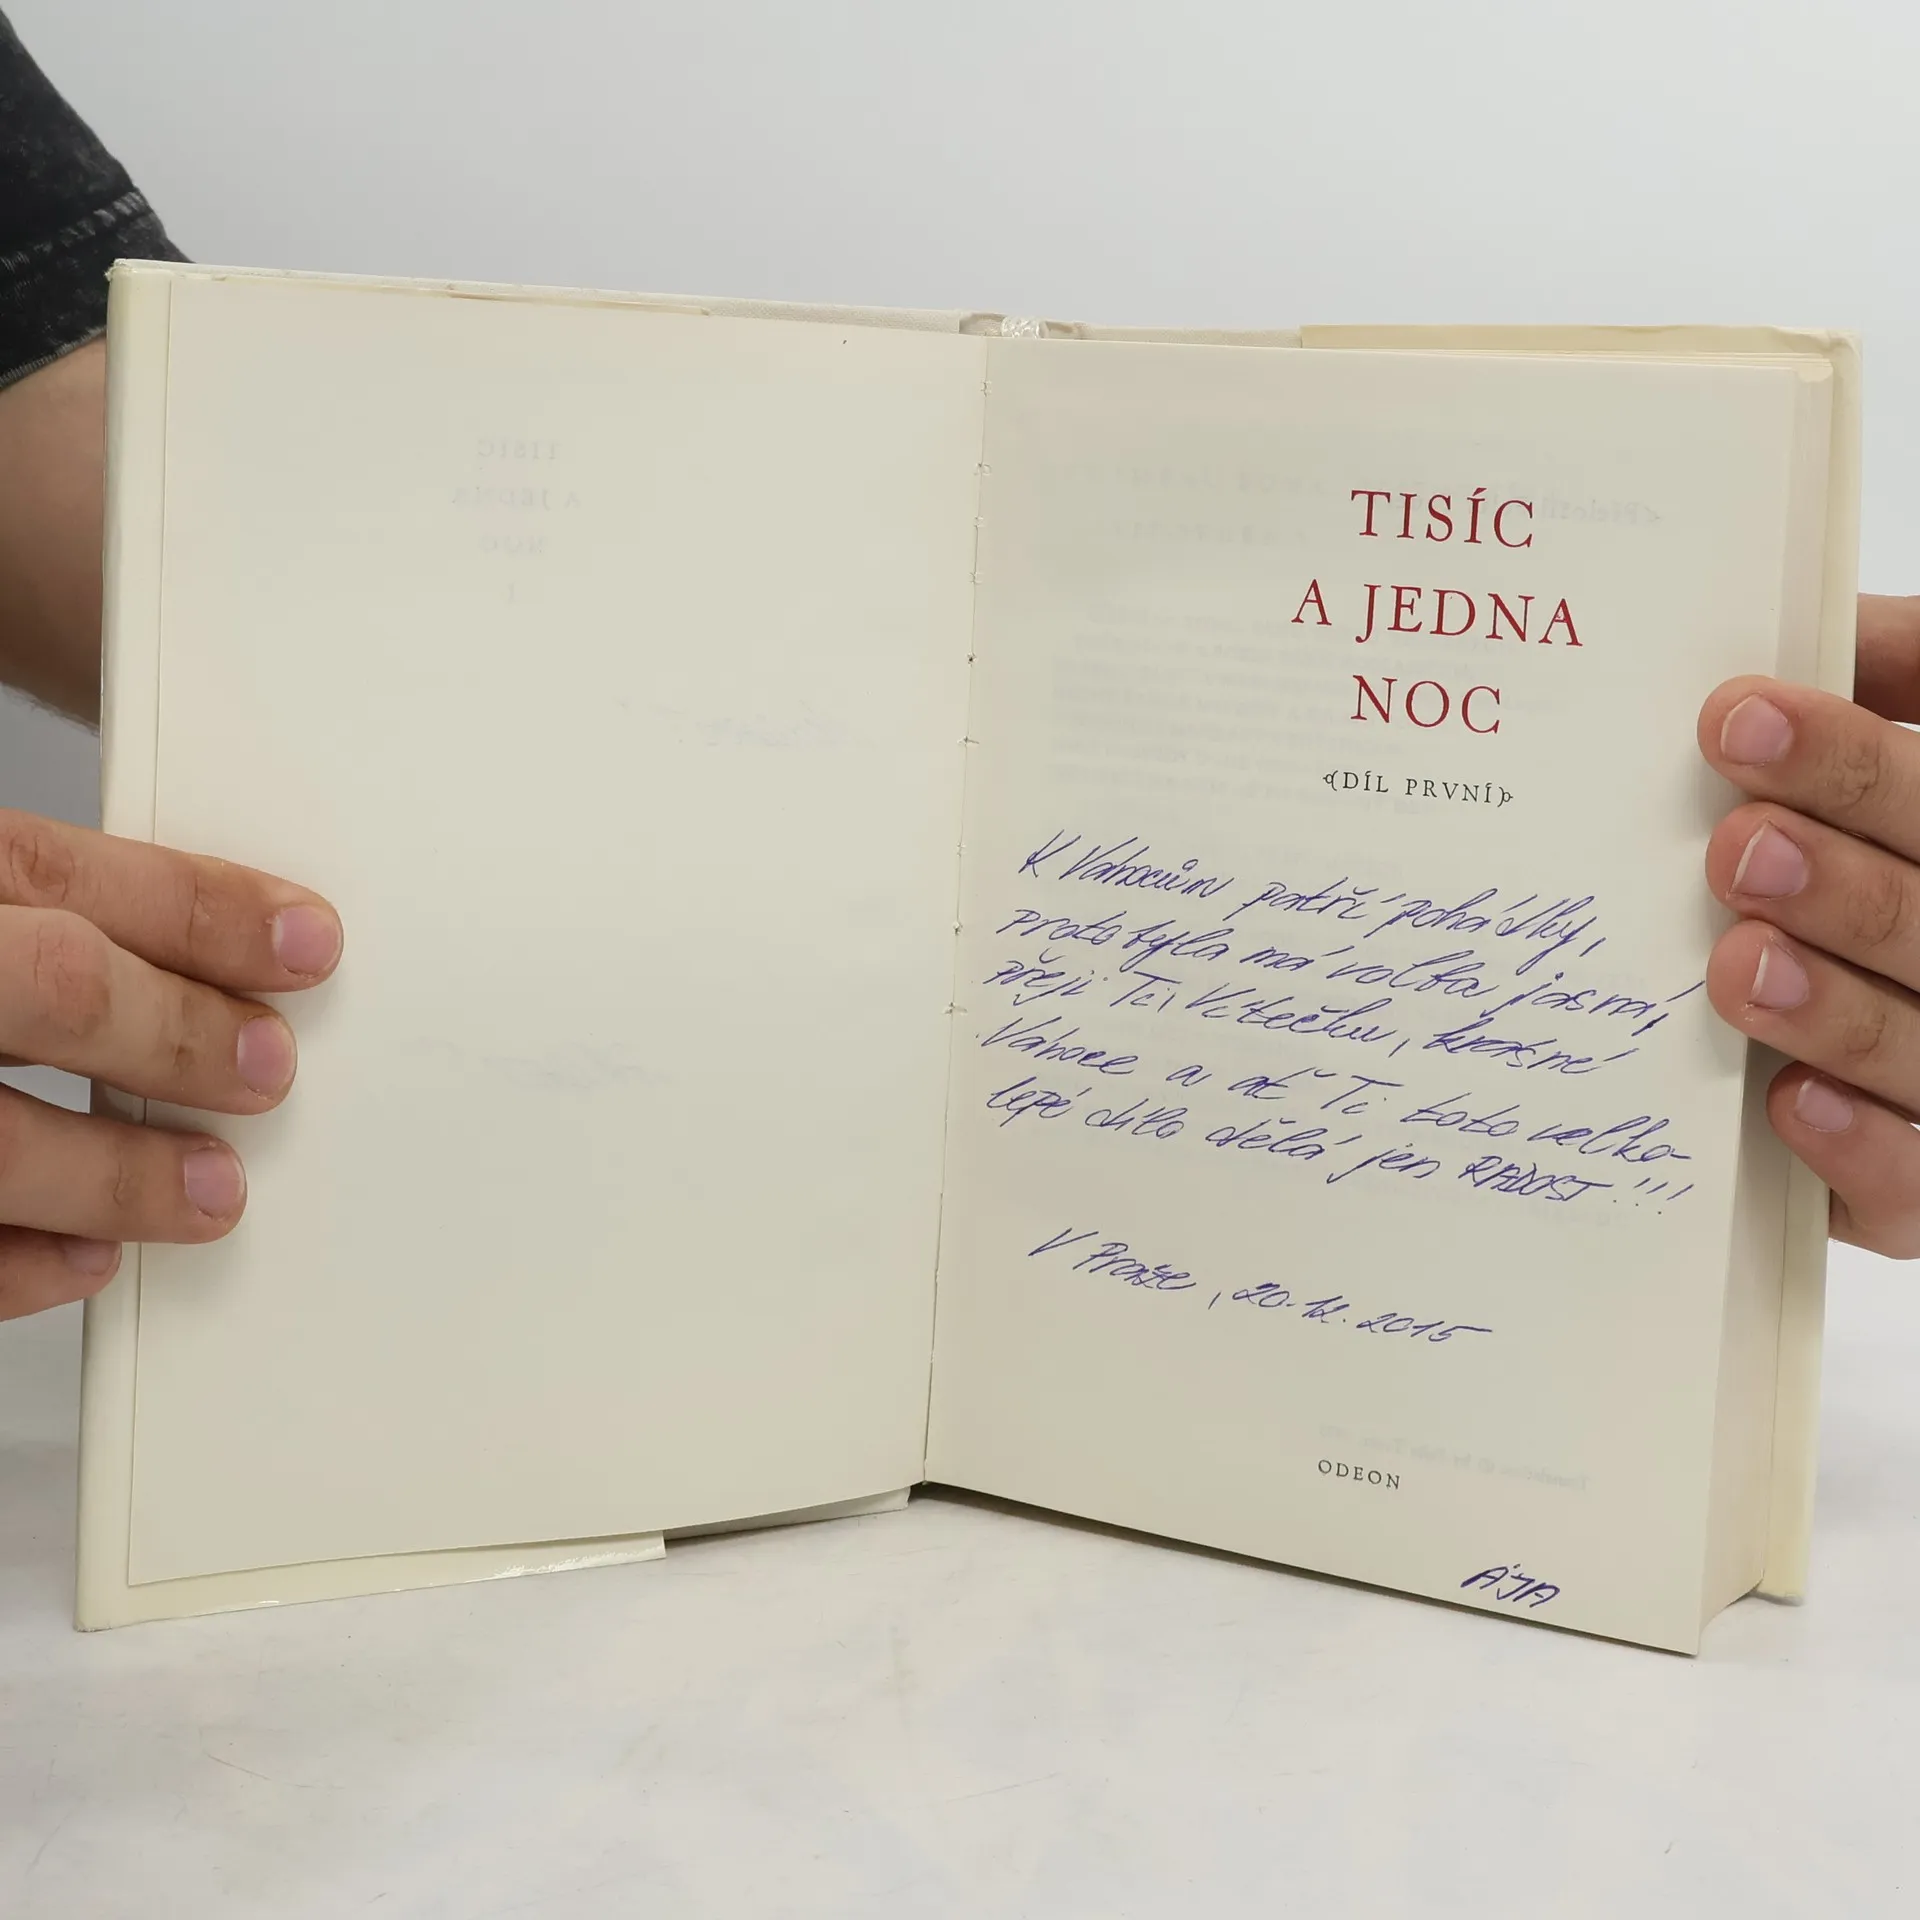 TISÍC
A JEDNA
NOC
(DÍL PRVNÍ)
K Vánocům patří pohádky,
proto byla má volba jasná,
přeji Ti, Vítečku, krásné
Vánoce a ať Ti toto velko-
lepé dílo dělá jen RADOST!!!
V Praze, 20.12.2015
ODEON
ÁJA